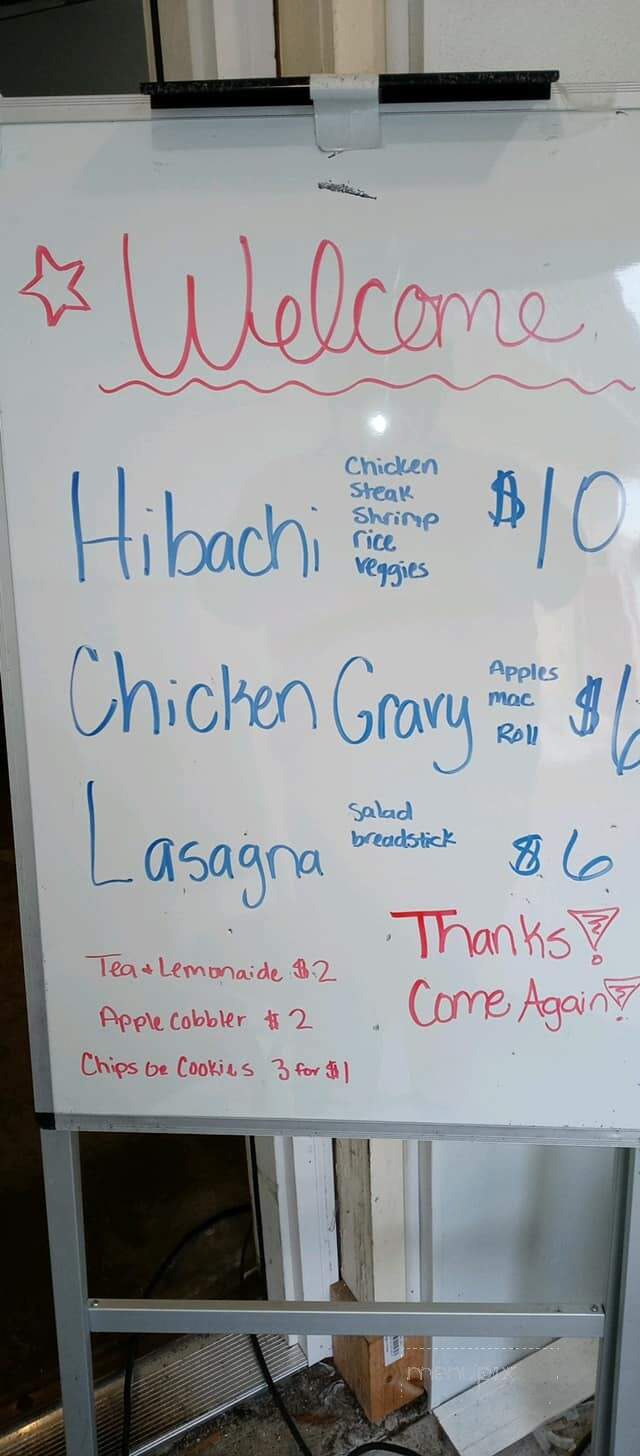 Welcome
Hibachi Chicken Steak Shrimp rice veggies $10
Chicken Gravy Apples mac Roll $6
Lasagna salad breadstick $6
Thanks!
Come Again!
Tea & Lemonaide $2
Apple Cobbler $2
Chips or Cookies 3 for $1
menupix